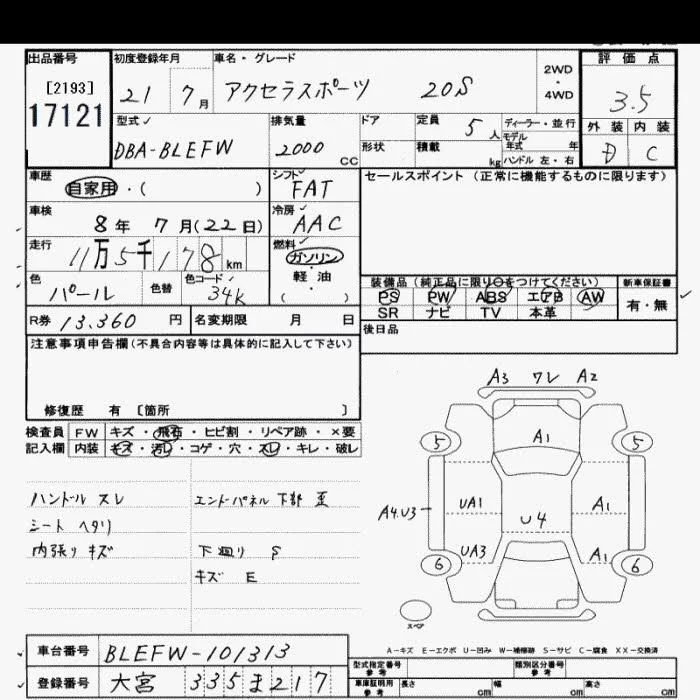 出品番号 初度登録年月 車名・グレード 評価点
[2193] 21 7月 アクセラスポーツ 20S 2WD・4WD 3.5
17121
型式 排気量 ドア 定員 5人 ディーラー・並行 外装 内装
DBA-BLEFW 2000 CC 形状 積載 kg モデル年式 年 D C
ハンドル 左・右
車歴 シフト セールスポイント (正常に機能するものに限ります)
自家用・( ) FAT
車検 冷房
8年 7月(22日) AAC
走行 燃料
11万5千178km ガソリン・軽油
色 色替 色コード ( )
パール 34K
装備品(純正品に限り○をつけてください) 新車保証書
PS PW ABS エアB AW 有・無
SR ナビ TV 本革
R券 13.360円 名変期限 月 日 後日品
注意事項申告欄(不具合内容等は具体的に記入して下さい)
修復歴 有 [箇所 ]
検査員 FW キズ・飛石・ヒビ割・リペア跡・×要
記入欄 内装 キズ・汚レ・コゲ・穴・スレ・キレ・破レ
A3 ワレ A2
5 A1 5
ハンドル スレ エンドパネル 下部 歪
A4.U3 UA1 A1
シート ヘタリ
U4
内張り キズ 下廻り S
UA3 A1
キズ E
6 6
スペア
A-キズ E-エクボ U-凹み W-補修跡 S-サビ C-腐食 XX-交換済
車台番号 BLEFW-101313
型式指定番号 参考 類別区分番号 参考
登録番号 大宮 335ま217
車庫証明用 参考 長さ cm 幅 cm 高さ cm